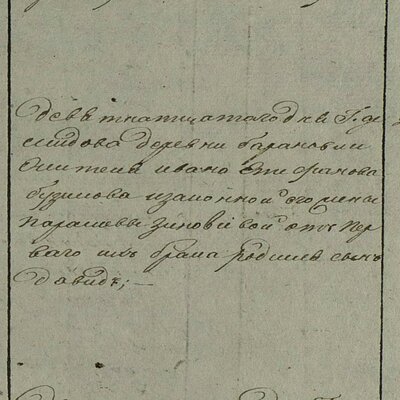 Девятнатцатого дня Г. де
мидова деревни барановки
жителя ивана стефанова
бузинова изаконной его жены
парасковы зиновиевой отъ пер
ваго ихъ брака родился сынъ
давидъ;